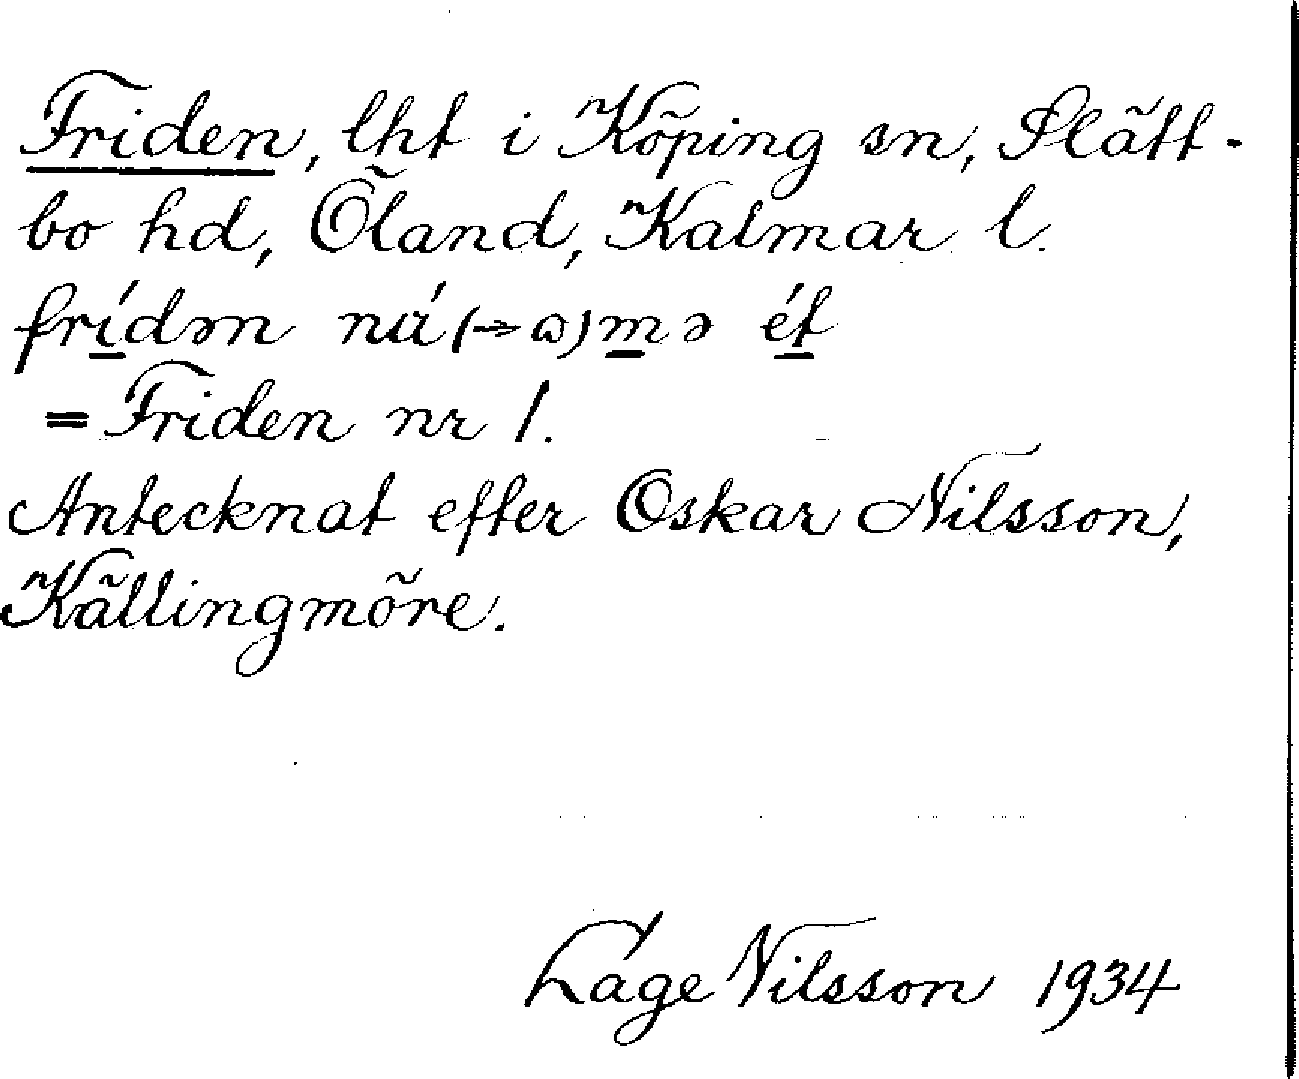 Friden, lht i Köping sn, Slätt-
bo hd, Öland, Kalmar l.
frídən nú(→ɷ)mə ét
= Friden nr 1.
Antecknat efter Oskar Nilsson,
Källingmöre.
Lage Nilsson 1934